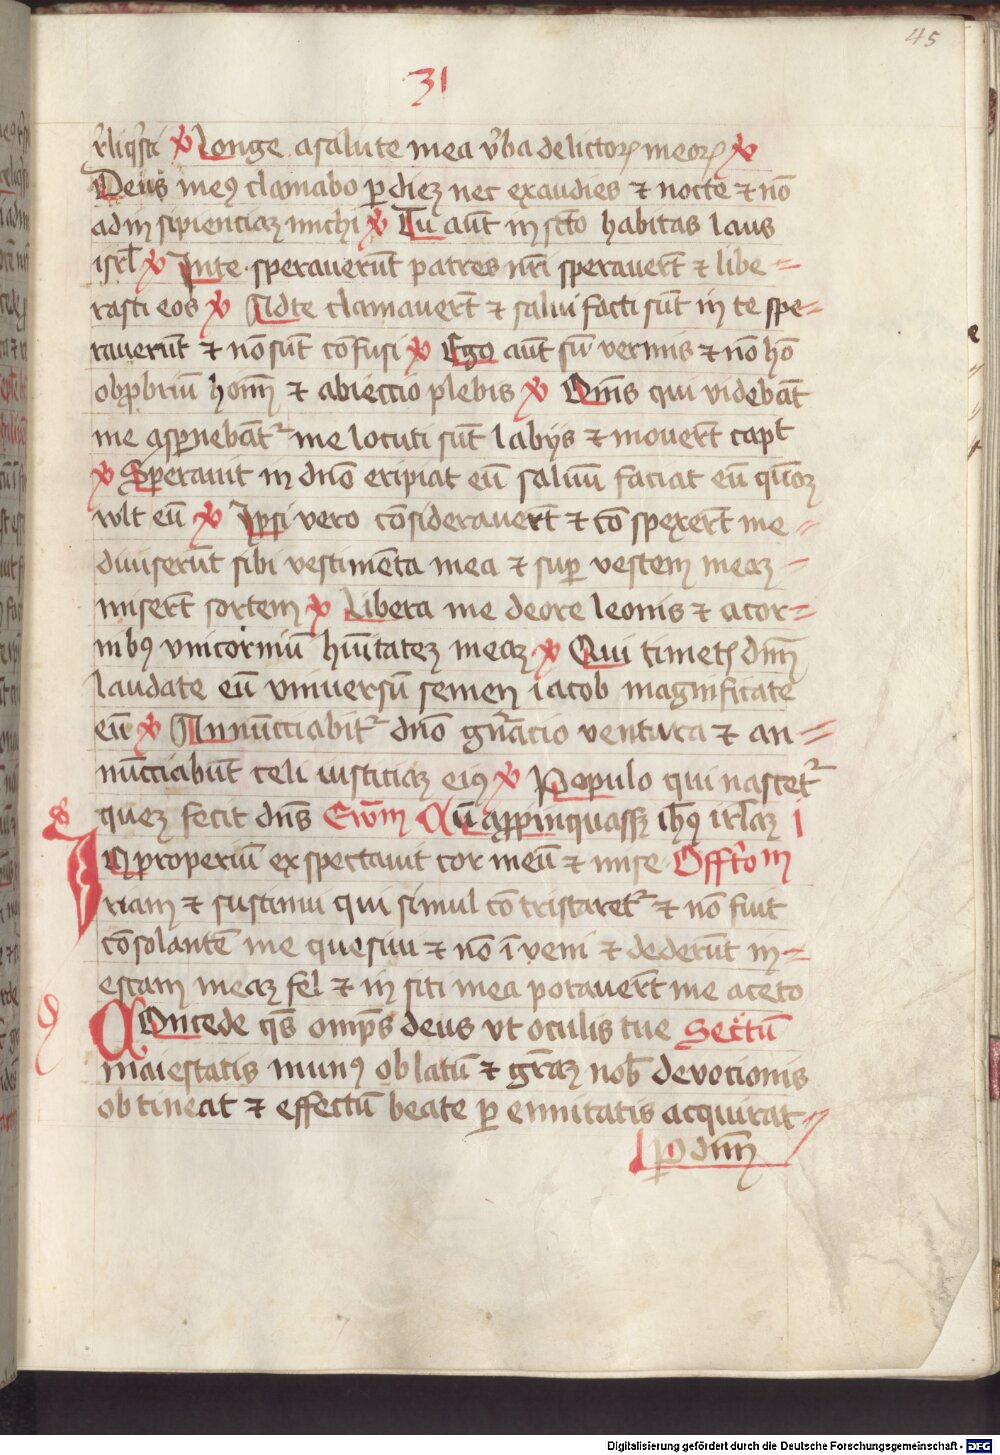 45
31
r̄liq̄sti ℣ Longe a salute mea v̄ba delictoꝝ meoꝝ ℣
Deus meꝰ clamabo ꝑ dieꝫ nec exaudies ⁊ nocte ⁊ nō
ad insipienciaꝫ michi ℣ Tu aut̄ in sc̄to habitas laus
isrl̄ ℣ In te speraverūt patres nr̄i speravert̄ ⁊ libe⸗
rasti eos ℣ Ad te clamavert̄ ⁊ salui facti sūt in te spe⸗
raverūt ⁊ nō sūt cōfusi ℣ Ego aut̄ sū vermis ⁊ nō hō
obꝓbriū hoīm ⁊ abieccio plebis ℣ Om̄s qui videbāt
me asꝑnebāt᷑ me locuti sūt labijs ⁊ movert̄ capt̄
℣ Speravit in dn̄o eripiat eū saluū faciat eū qm̄
wlt eū ℣ Ipsi vero cōsideravert̄ ⁊ cōspexert̄ me
diuiserūt sibi vestimēta mea ⁊ suꝑ vestem meaꝫ
misert̄ sortem ℣ Libera me de ore leonis ⁊ a cor⸗
nibꝰ vnicorniū hūītateꝫ meaꝫ ℣ Qui timetꝭ dn̄m
laudate eū vniversū semen iacob magnificate
eū ℣ Annūcciabit᷑ dn̄o gn̄acio ventura ⁊ an⸗
nūcciabūt celi iusticiaꝫ eiꝰ ℣ Populo qui nascet᷑
queꝫ fecit dn̄s Ewm̄ Cū apꝓpinquassꝫ ih̄us irl̄aꝫ i
Inproperiū exspectauit cor meū ⁊ mise Offr̄om
riam ⁊ sustinui qui simul cōtristaret᷑ ⁊ nō fuit
cōsolantē me quesiui ⁊ nō īveni ⁊ dederūt in⸗
escam meaꝫ fel ⁊ in siti mea potavert̄ me aceto
Concede qs̄ omp̄s deus vt oculis tue Secr̄tū
maiestatis munꝰ oblatū ⁊ gr̄aꝫ nob̄ devocionis
obtineat ⁊ effectū beate ꝑennitatis acquirat
P dn̄m
Digitalisierung gefördert durch die Deutsche Forschungsgemeinschaft - DFG